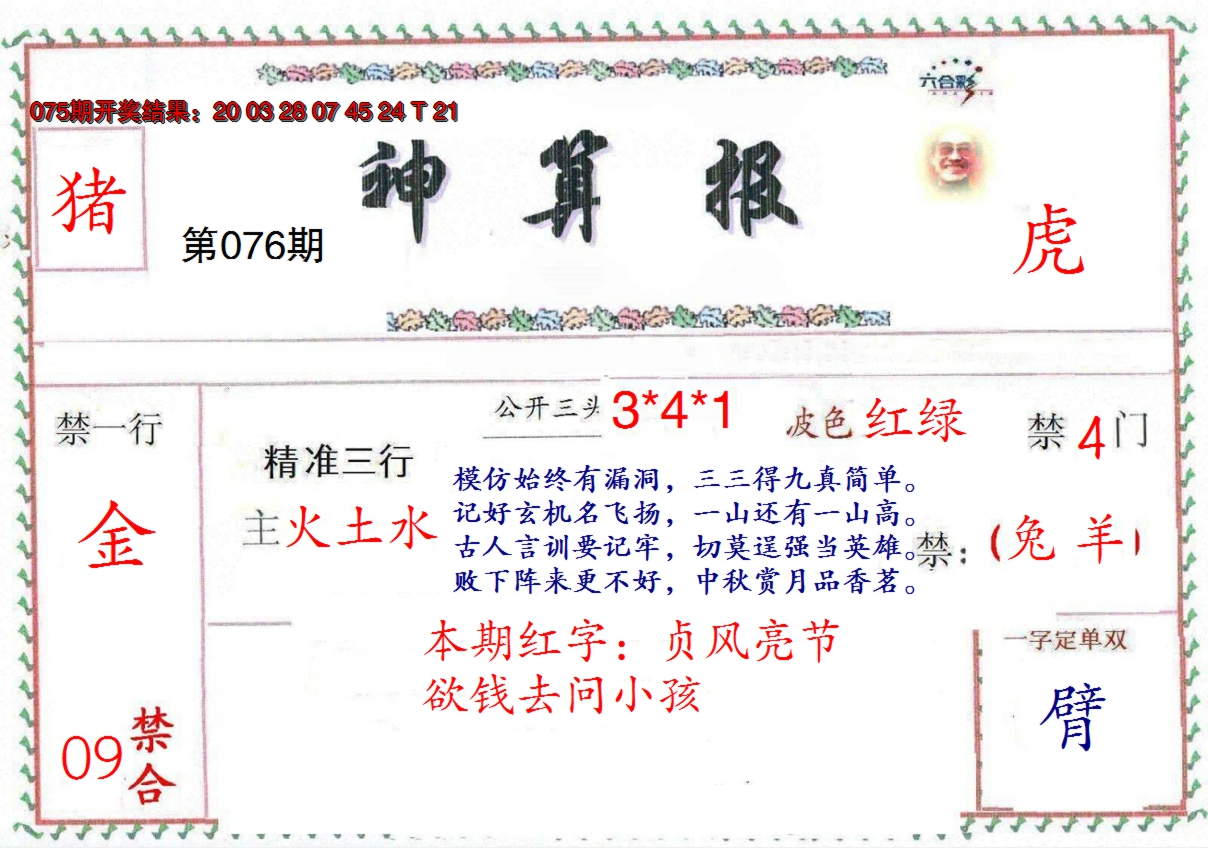 六合彩
075期开奖结果：20 03 28 07 45 24 T 21
神算报
猪
第076期
虎
禁一行
金
09
禁合
精准三行
主火土水
公开三头 3*4*1
波色 红绿
禁4门
模仿始终有漏洞，三三得九真简单。
记好玄机名飞扬，一山还有一山高。
古人言训要记牢，切莫逞强当英雄。
败下阵来更不好，中秋赏月品香茗。
禁：（兔 羊）
本期红字：贞风亮节
欲钱去问小孩
一字定单双
臂